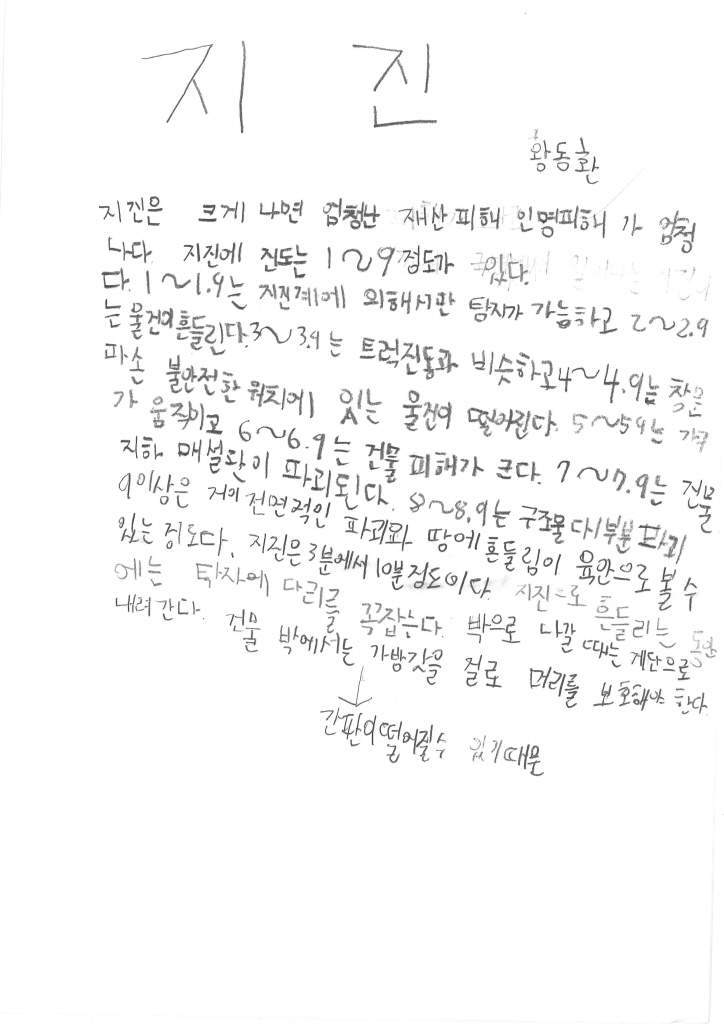 지진
황동환
지진은 크게 나면 엄청난 재산피해 인명피해 가 엄청
나다. 지진에 진도는 1~9정도가 있다.
다. 1~1.9는 지진계에 의해서만 탐지가 가능하고 2~2.9
는 물건이흔들린다.3~3.9는 트럭진동과 비슷하고4~4.9는 창문
파손 불안전한 위치에 있는 물건이 떨어린다. 5~5.9는 가구
가 움직이고 6~6.9는 건물피해가 크다. 7~7.9는 건물
지하 매설관이 파괴된다. 8~8.9는 구조물다부분 파괴
9이상은 거이 전면적인 파괴와 땅에 흔들림이 육안으로 볼 수
있는 정도다. 지진은 3분에서 10분정도이다. 지진으로 흔들리는 동안
에는 탁자에 다리를 꼭잡는다. 박으로 나갈 때는 계단으로
내려간다. 건물 박에서는 가방갓을 걸로 머리를 보호해야 한다.
간판이떨어질수 있기때문